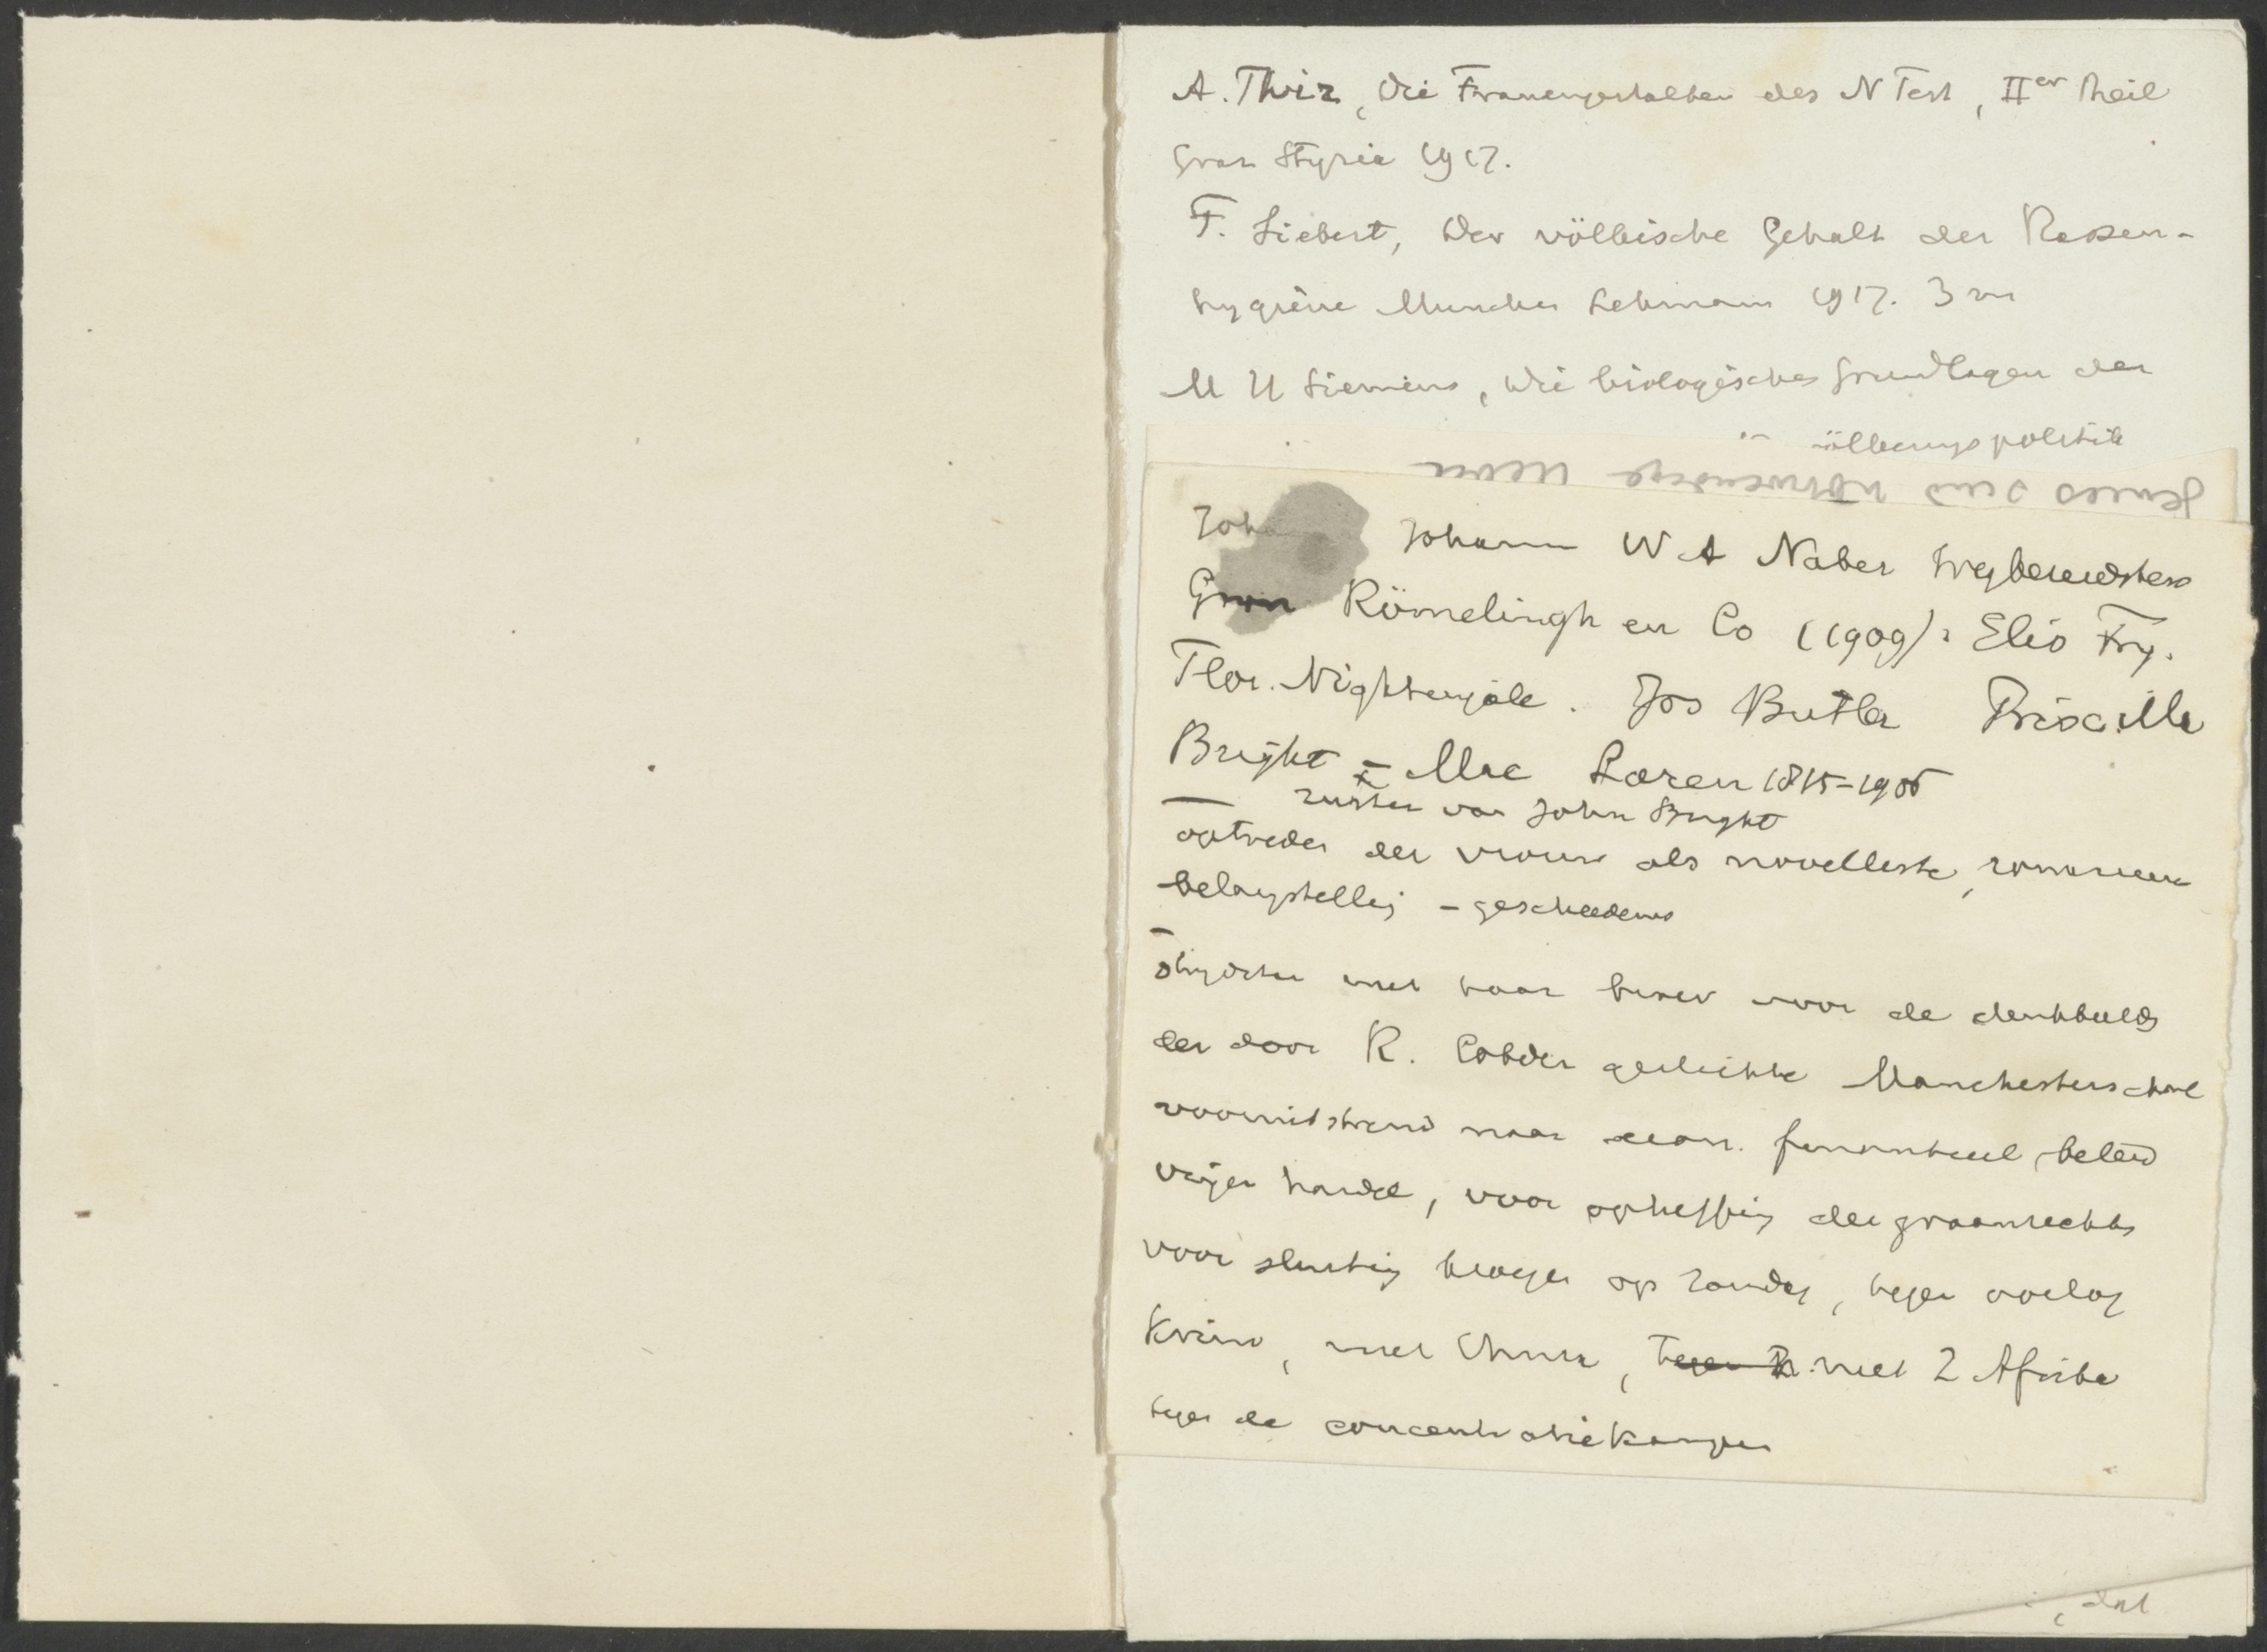 A. Thir, Die Frauengestalten des N Test, IIer Theil
Graz Styria 1917.
F. Siebert, Der völkische Gehalt der Rassen-
hygiëne Munchen Lehmann 1917. 3 m
Siemens, Die biologischen Grundlagen der
ölkerungspolitik
Joha Johann W A Naber Wegbereidsters
Gron Römelingh en Co (1909): Elis Fry.
Flor. Nightengale. Jos Butler Priscilla
Bright - Mac Laren 1815-1906
zuster van John Bright
optreden der vrouw als novelliste, romanciere
belangstelling - geschiedenis
strijdster met haar broer voor de denkbeelden
der door R. Cobden gestichte Manchesterschool
vooruitstrevend naar econ. financieel beleid
vrijen handel, voor opheffing der graanrechten
voor sluiting kroegen op Zondag, tegen oorlog
Krim, met China, tegen met Z Afrika
tegen de concentratiekampen
, dat